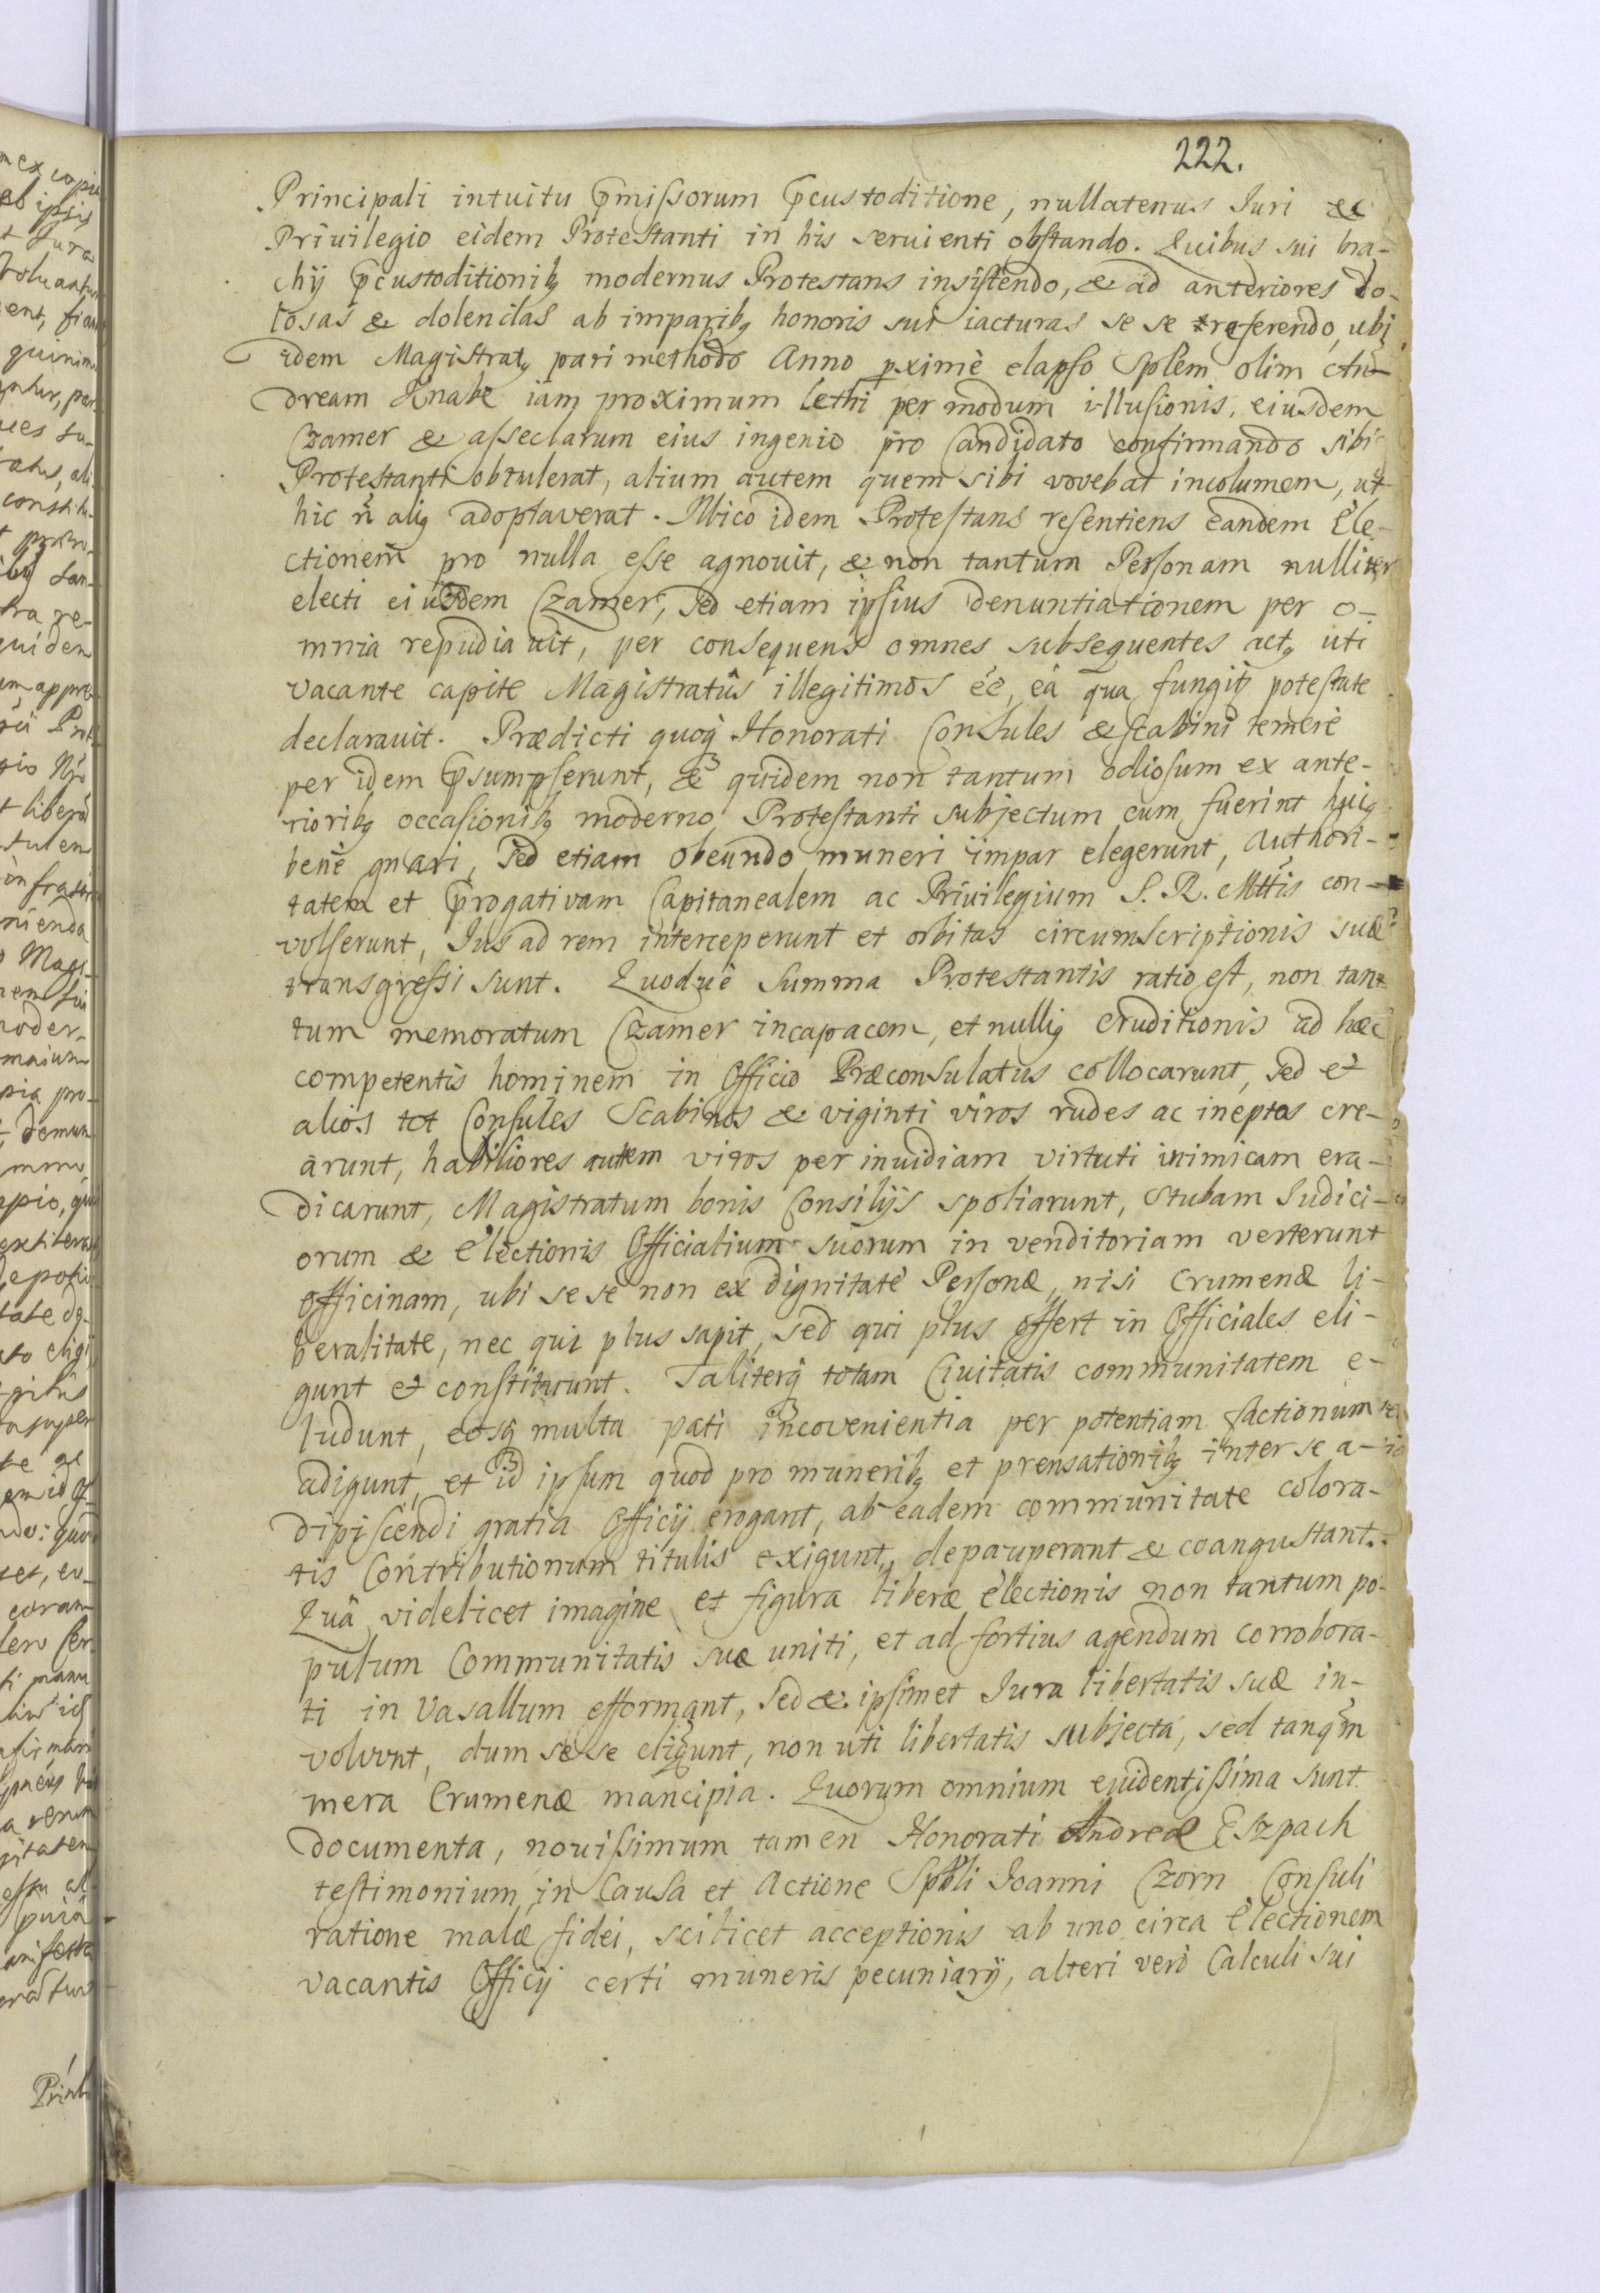 222.
Principali intuitu p̄missorum p̄custoditione, nullatenus Iuri &
Privilegio eidem Protestanti in his seruienti obstando. Quibus sui bra-
chij p̄custoditionibꝫ modernus Protestans insistendo, & ad anteriores do-
losas & dolendas ab imparibꝫ honoris sui iacturas se se referendo, ubi
idem Magistratꝫ pari methodo Anno pximè elapso Splem olim An-
dream Knabe iam proximum lethi per modum illusionis, eiusdem
Czamer & asseclarum eius ingenio pro Candidato confirmando sibi
Protestanti obtulerat, alium autem quem sibi vovebat incolumem, ut
hic n̄ aliꝫ adoptaverat. Illico idem Protestans resentiens eandem Ele-
ctionem pro nulla esse agnouit, & non tantum Personam nulliter
electi eiusdem Czamer, sed etiam ipsius denuntiationem per o-
mnia repudiauit, per consequens omnes subsequentes actꝫ uti
vacante capite Magistratûs illegitimos éé, eâ qua fungitꝫ potestate
declarauit. Prædicti quoqꝫ Honorati Consules & Scabini temerè
per idem p̄sumpserunt, & quidem non tantum odiosum ex ante-
rioribꝫ occasionibꝫ moderno Protestanti subjectum cum fuerint huiꝫ
bene gnari, sed etiam obeundo muneri impar elegerunt, Authori-
tatem et p̄rogativam Capitanealem ac Priuilegium S. R. Mttis con-
volserunt, Ius ad rem interceperunt et orbitas circumscriptionis suæ
transgressi sunt. Quodque summa Protestantis ratio est, non tan-
tum memoratum Czamer incapacem, et nulliꝫ eruditionis ad hæc
competentis hominem in Officio Præconsulatus collocarunt, sed et
alios tot Consules Scabinos & viginti viros rudes ac ineptos cre-
arunt, habiliores autem viros per inuidiam virtuti inimicam era-
dicarunt, Magistratum bonis Consilijs spoliarunt, Stubam Iudici-
orum & Electionis Officialium suorum in venditoriam verterunt
Officinam, ubi se se non ex dignitate Personæ, nisi Crumenæ li-
beralitate, nec qui plus sapit, sed qui plus offert in Officiales eli-
gunt et constituunt. Taliterqꝫ totam Civitatis communitatem e-
ludunt, eosqꝫ multa pati incovenientia per potentiam factionum
adigunt, et id ipsum quod pro muneribꝫ et prensationibꝫ inter se a-
dipiscendi gratia Officij erogant, ab eadem communitate colora-
tis Contributionum titulis exigunt, depauperant & coangustant.
Quâ videlicet imagine et figura liberæ Electionis non tantum po-
pulum Communitatis suæ uniti, et ad fortius agendum corrobora-
ti in Vasallum efformant, sed & ipsimet Iura libertatis suæ in-
volvunt, dum se se eligunt, non uti libertatis subjecta, sed tanqm̄
mera Crumenæ mancipia. Quorum omnium euidentissima sunt
documenta, novissimum tamen Honorati Andreæ Eszpach
testimonium, in Causa et Actione Sptli Ioanni Czorn Consuli
ratione malæ fidei, scilicet acceptionis ab uno circa Electionem
vacantis Officij certi muneris pecuniarij, alteri verò Calculi sui